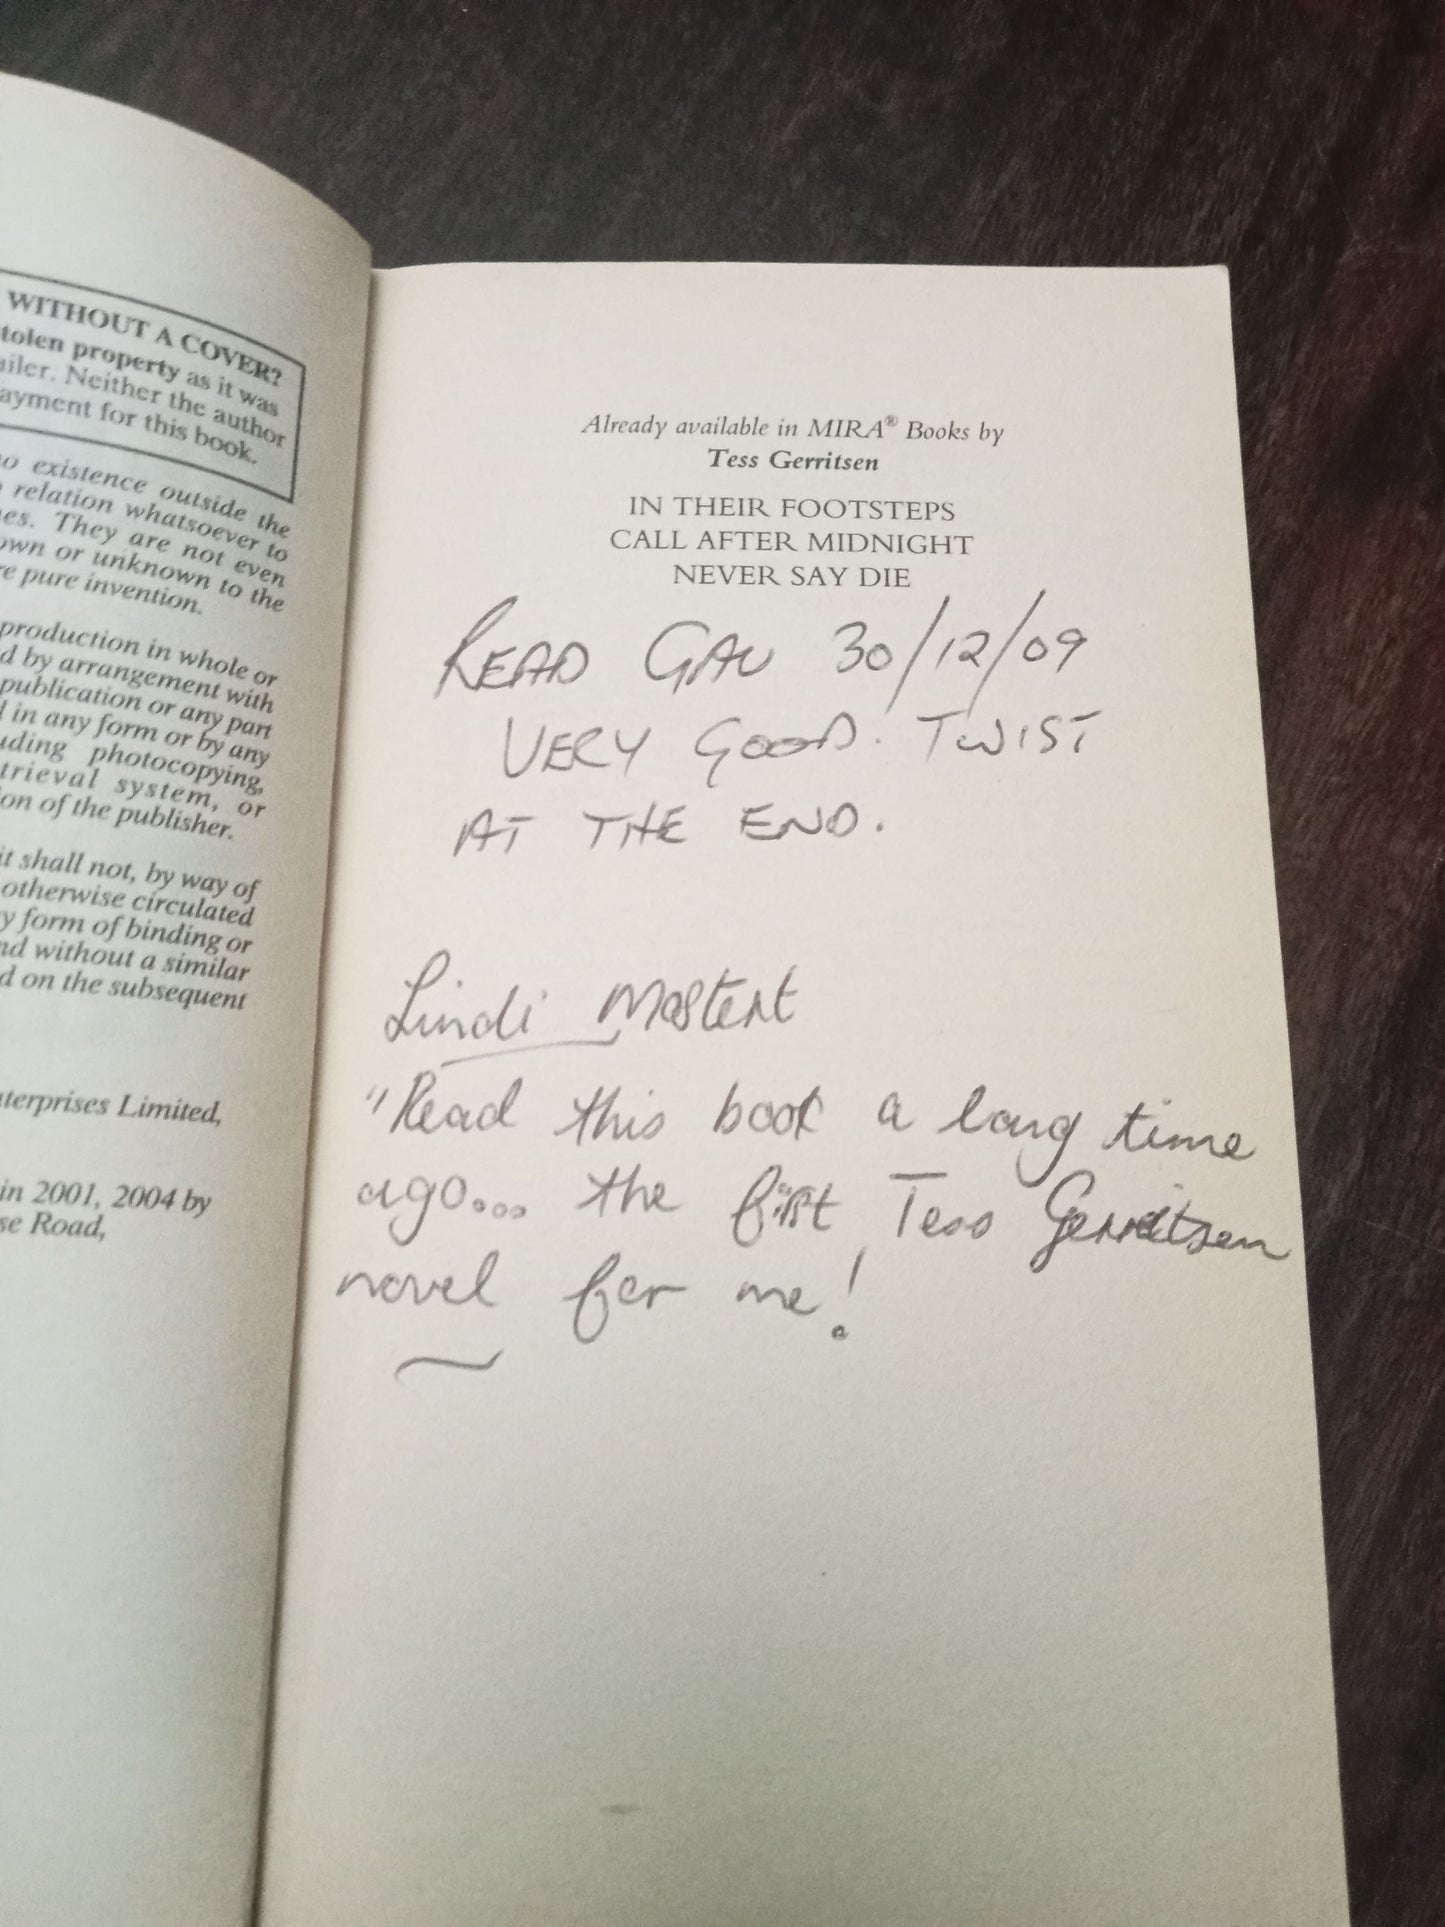 WITHOUT A COVER?
tolen property as it was
ailer. Neither the author
ayment for this book.
no existence outside the
relation whatsoever to
es. They are not even
own or unknown to the
re pure invention.
production in whole or
d by arrangement with
publication or any part
d in any form or by any
uding photocopying,
trieval system, or
ion of the publisher.
it shall not, by way of
otherwise circulated
y form of binding or
nd without a similar
d on the subsequent
nterprises Limited,
in 2001, 2004 by
se Road,
Already available in MIRA® Books by
Tess Gerritsen
IN THEIR FOOTSTEPS
CALL AFTER MIDNIGHT
NEVER SAY DIE
READ GAV 30/12/09
VERY GOOD. TWIST
AT THE END.
Lindi Mostert
"Read this book a long time
ago... the first Tess Gerritsen
novel for me!